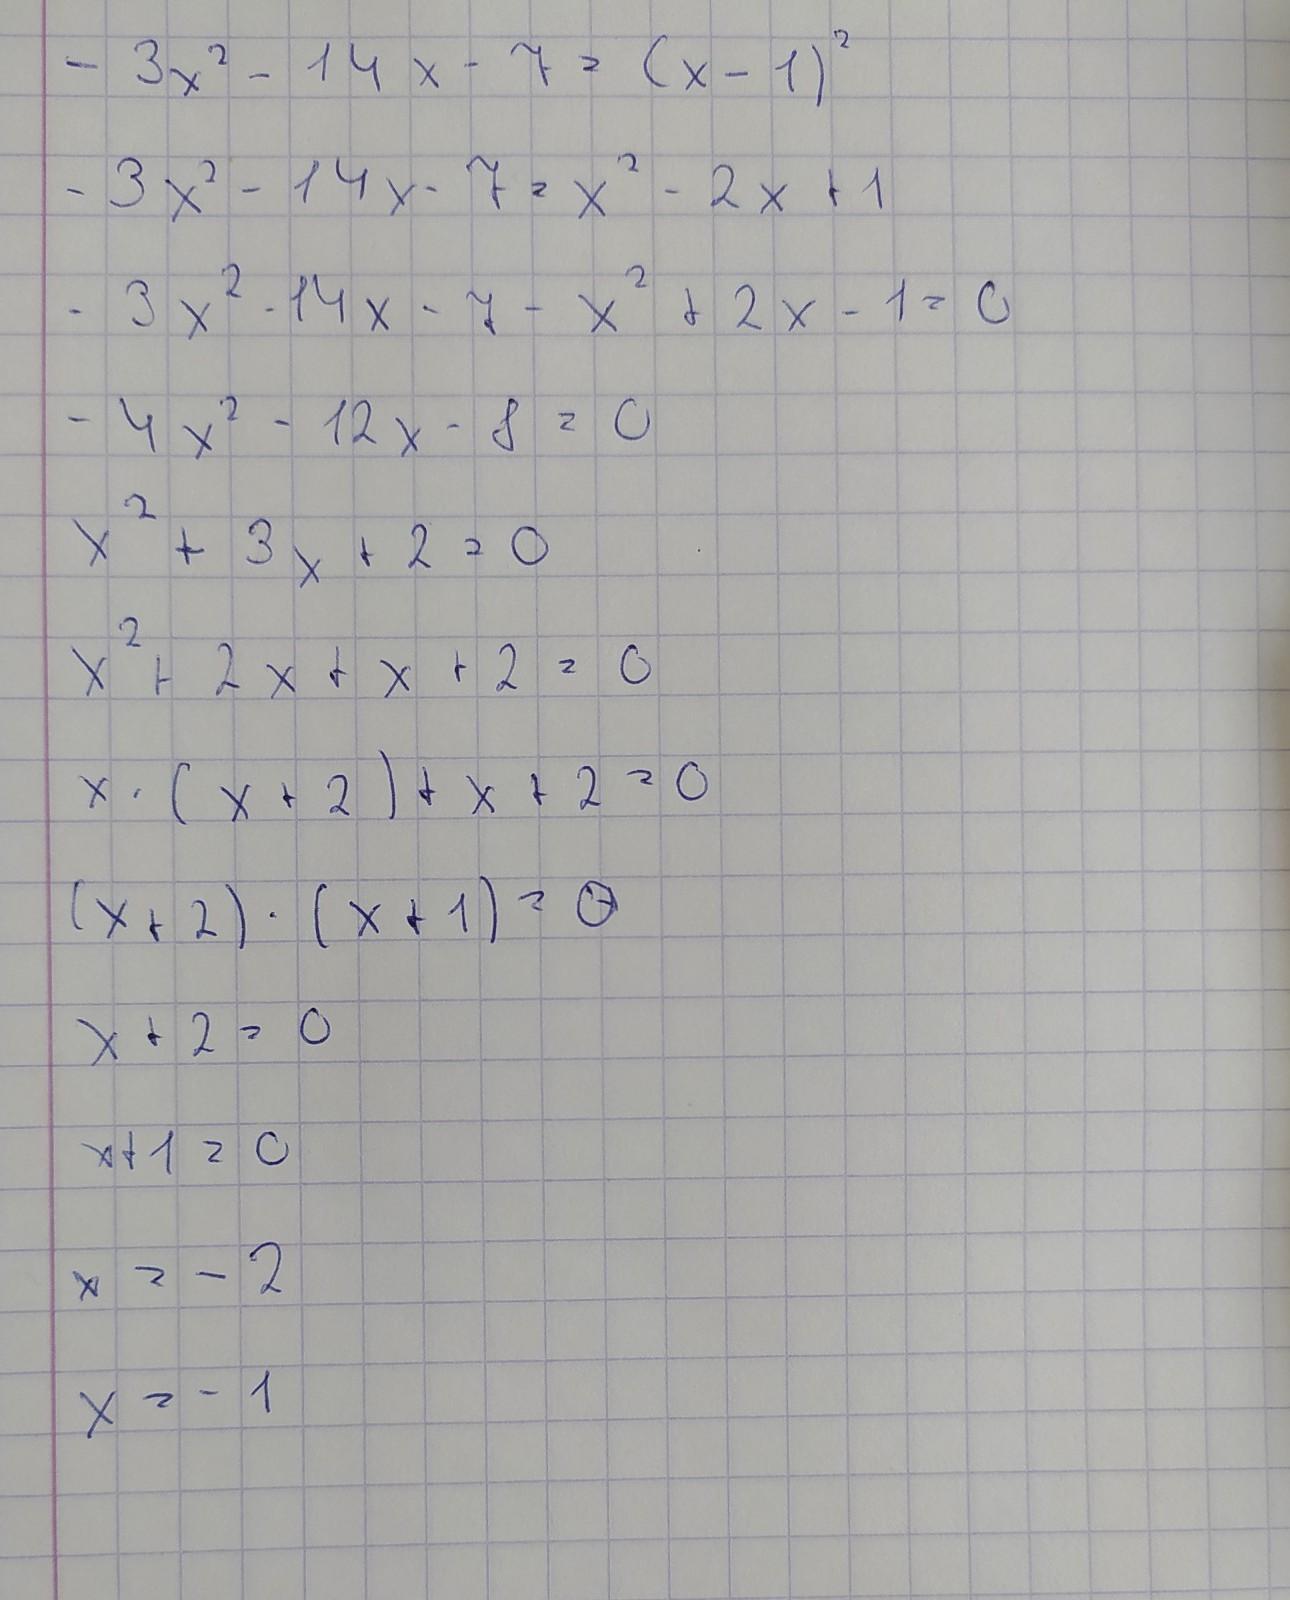 - 3x² - 14x - 7 = (x - 1)²
- 3x² - 14x - 7 = x² - 2x + 1
- 3x² - 14x - 7 - x² + 2x - 1 = 0
- 4x² - 12x - 8 = 0
x² + 3x + 2 = 0
x² + 2x + x + 2 = 0
x · (x + 2) + x + 2 = 0
(x + 2) · (x + 1) = 0
x + 2 = 0
x + 1 = 0
x = - 2
x = - 1